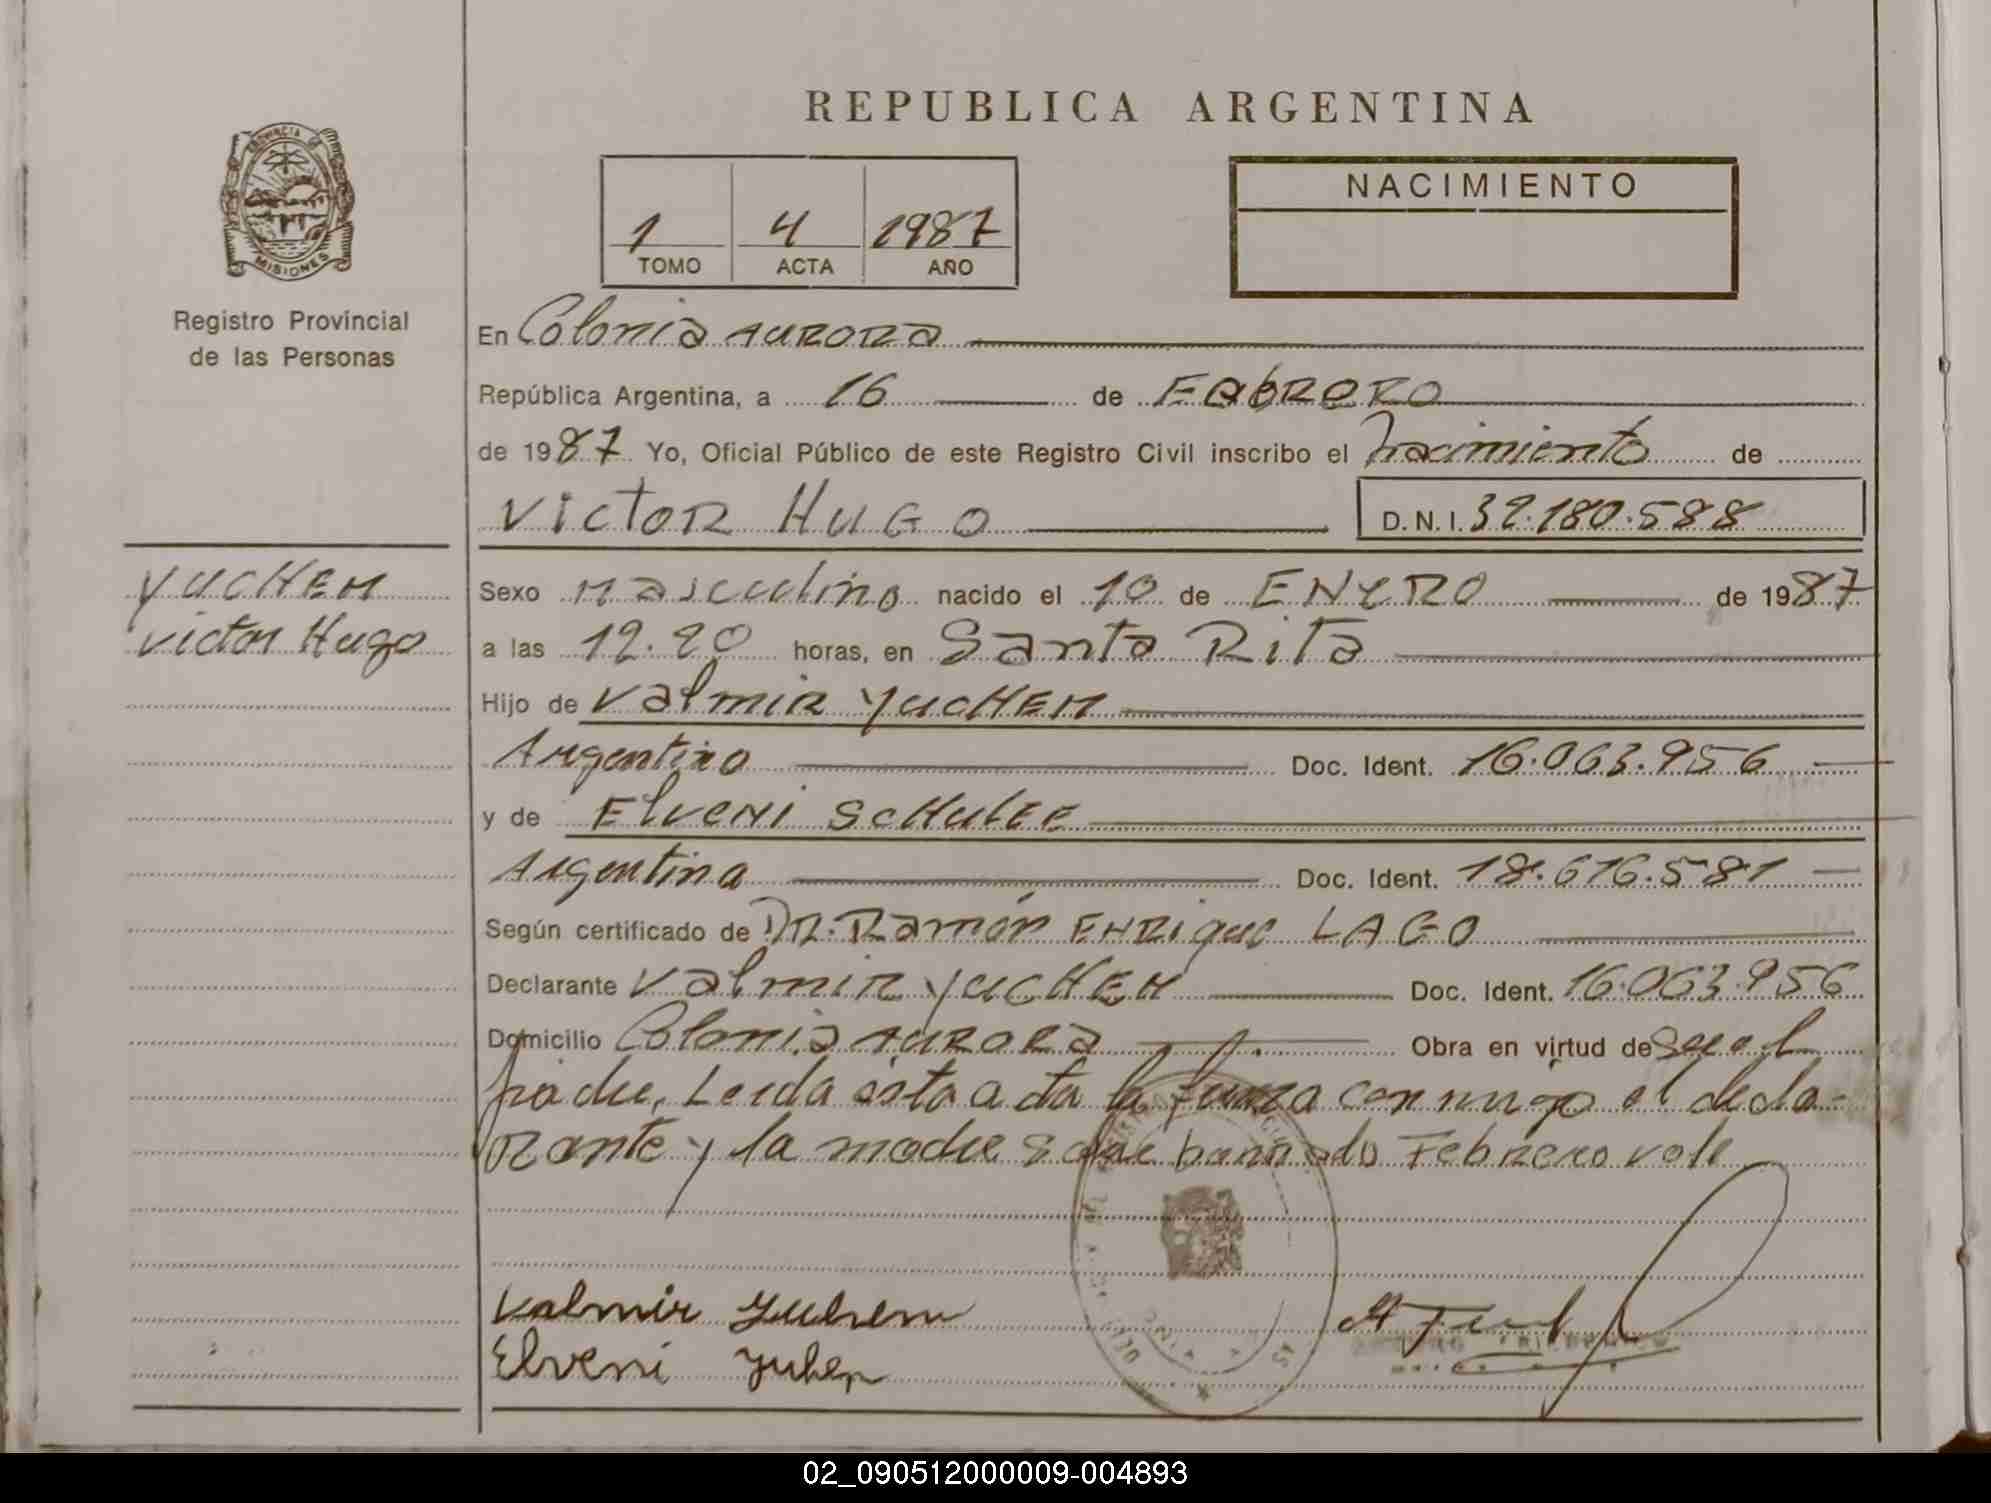 REPUBLICA ARGENTINA
PROVINCIA DE
MISIONES
Registro Provincial
de las Personas
1 4 1987
TOMO ACTA AÑO
NACIMIENTO
En Colonia AURORA
República Argentina, a 16 de FEbRERO
de 1987 Yo, Oficial Público de este Registro Civil inscribo el nacimiento de
VICTOR HUGO D.N.I. 32.180.588
YUCHEM
Victor Hugo
Sexo masculino nacido el 10 de ENERO de 1987
a las 12.20 horas, en Santa Rita
Hijo de Valmir YUCHEM
Argentino Doc. Ident. 16.063.956
y de ELVENI
Argentina Doc. Ident. 18.676.581
Según certificado de DR. Ramón ENRique LAGO
Declarante Valmir YUCHEM Doc. Ident. 16.063.956
Domicilio Colonia AURORA Obra en virtud de ser el
padre, Leida esta acta la firma conmigo el decla-
rante y la madre Sobre borrado Febrero vale
Valmir Yuhem
Elveni
02_090512000009-004893